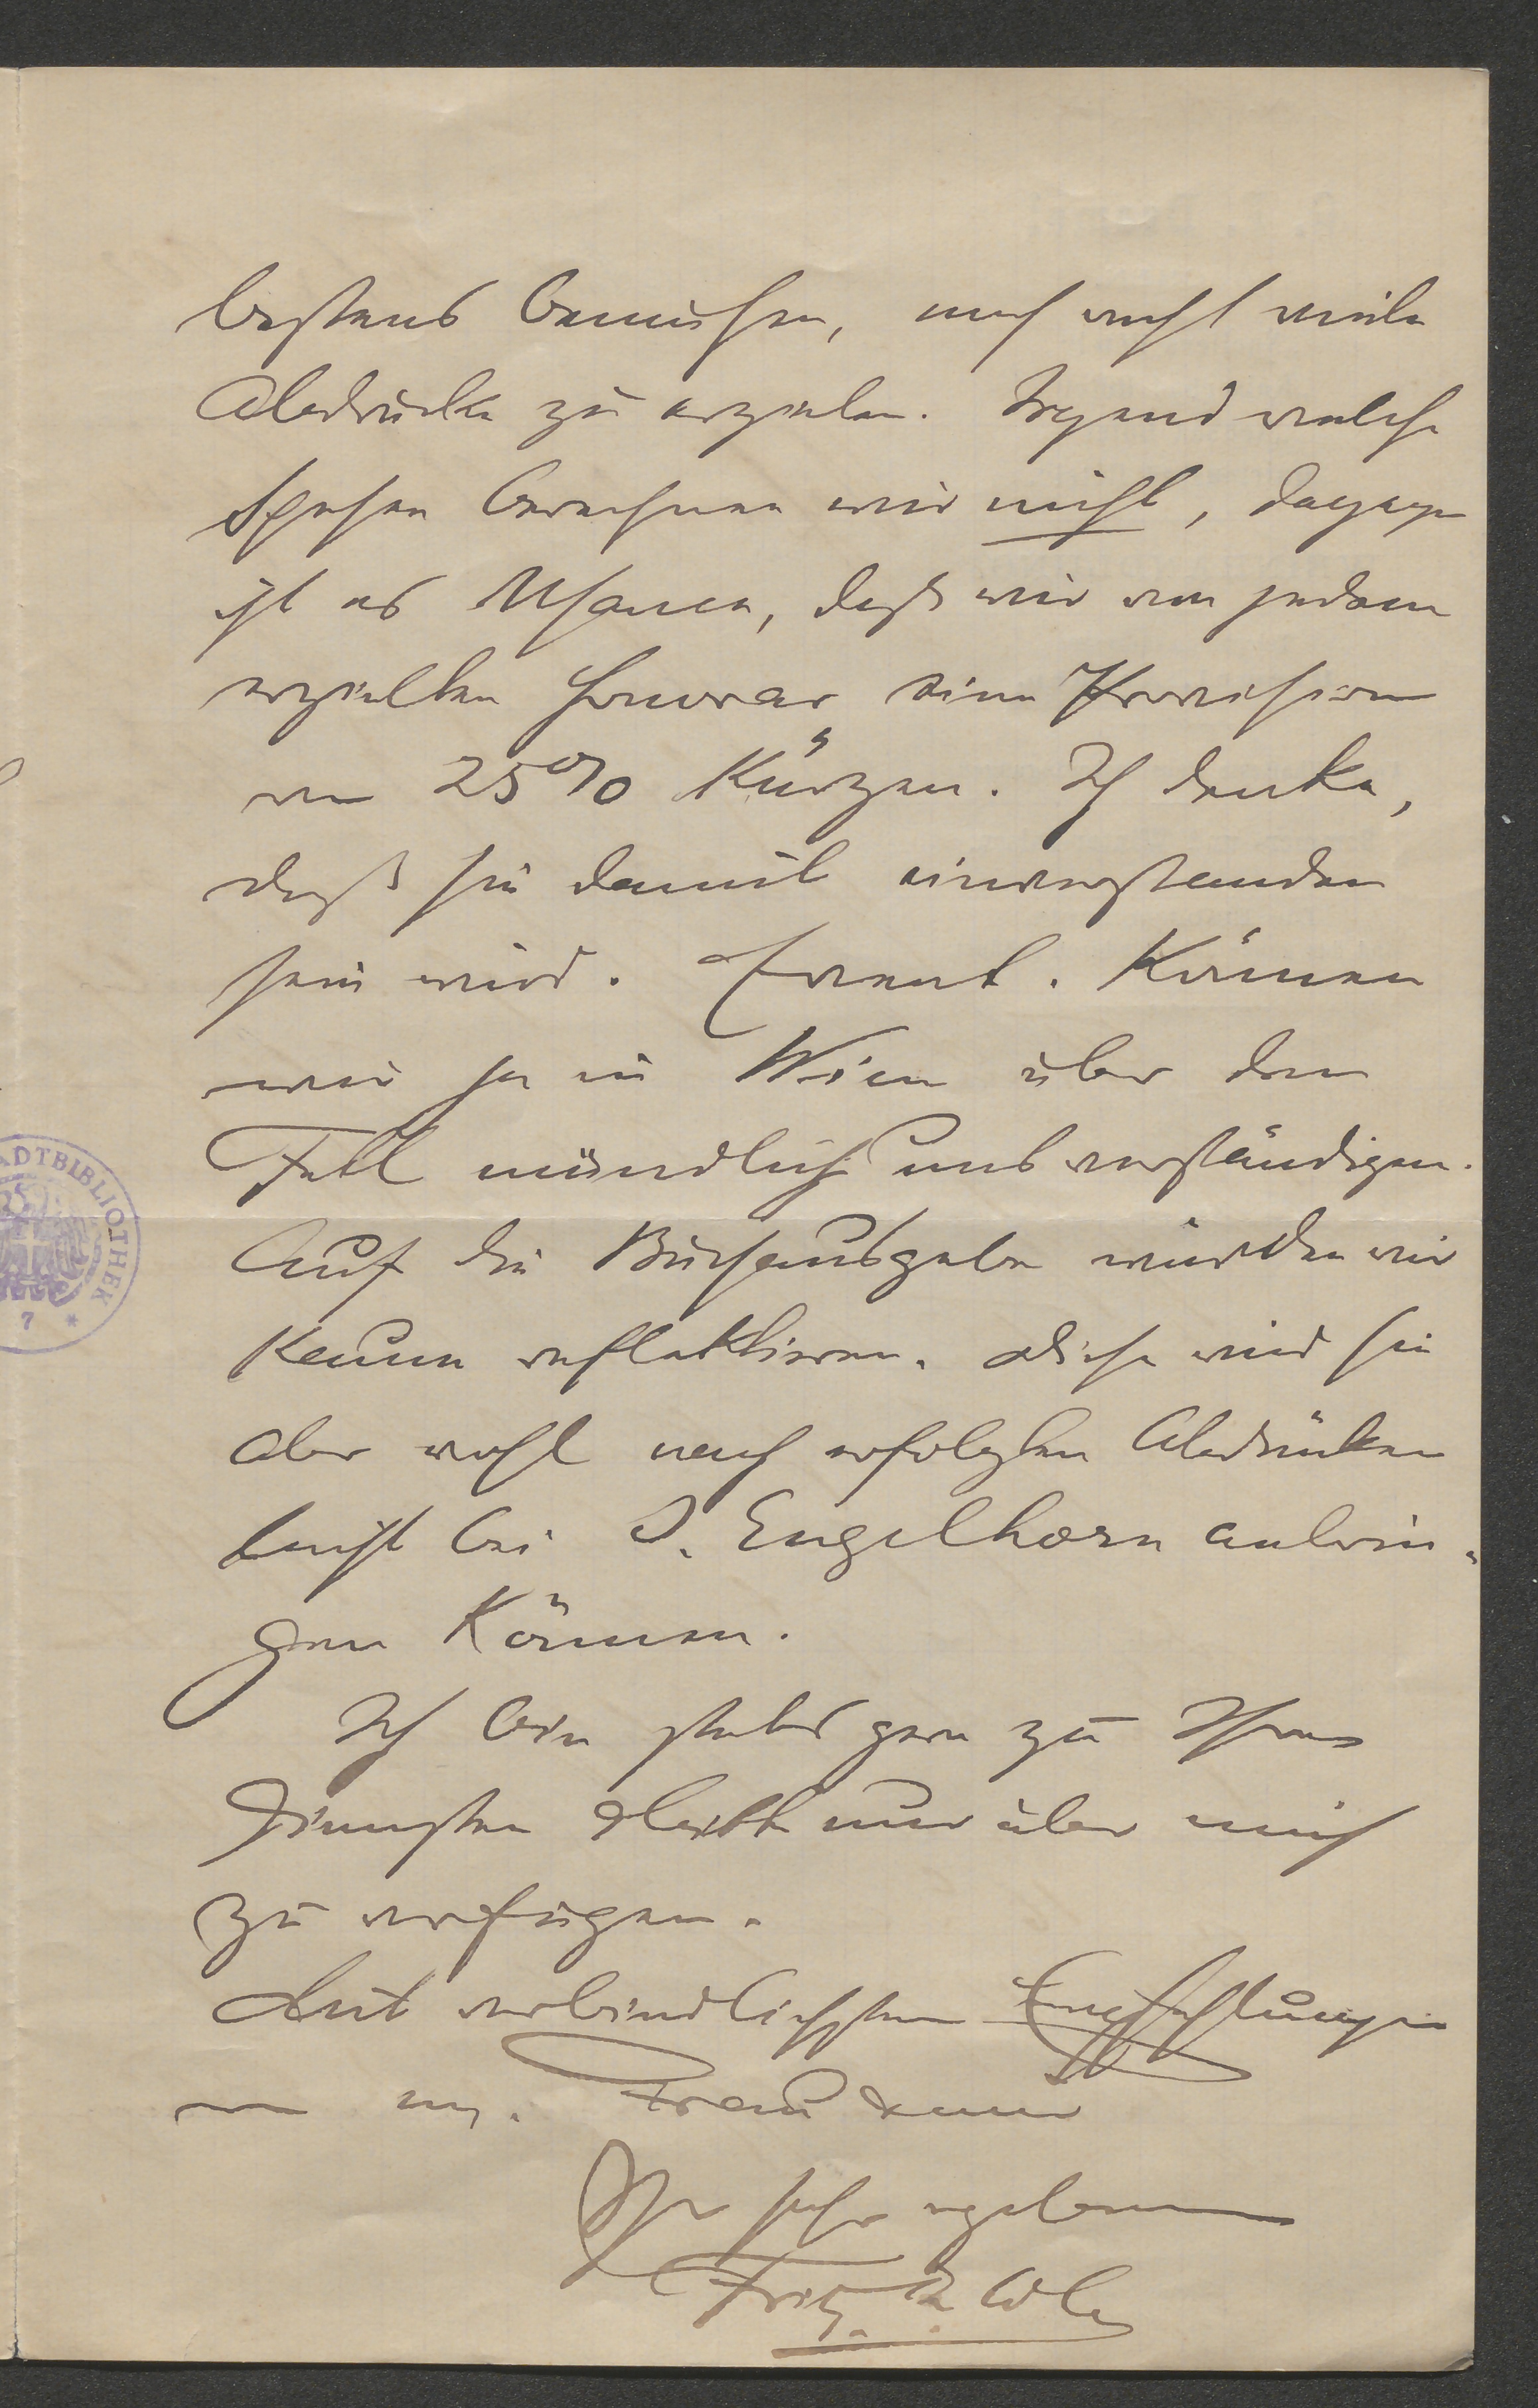 bestens bemühen, noch recht viele
Abdrücke zu erzielen. Irgend welche
Spesen berechnen wir nicht, dagegen
ist es Usance, daß wir von jedem
erzielten Honorar eine Provision
von 25% kürzen. Ich denke,
daß sie damit einverstanden
sein wird. Event. können
wir ja in Wien über den
Fall mündlich uns verständigen.
Auf die Buchausgabe würden wir
kaum reflektieren. Diese wird sie
aber wohl nach erfolgten Abdrücken
leicht bei J. Engelhorn anbrin-
gen können.
Ich bin stets gern zu Ihren
Diensten & bitte nur über mich
zu verfügen.
Mit verbindlichsten Empfehlungen
von m. Frau
Ihr sehr ergebener
Fritz
ADTBIBLIOTHEK
7 *